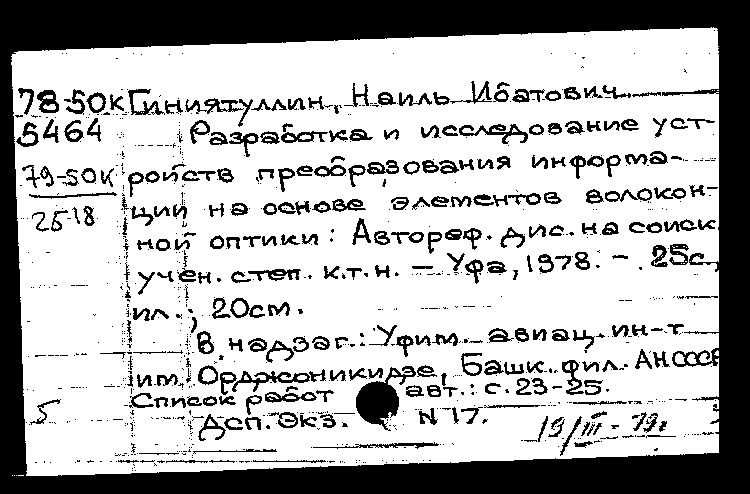 78-50к Гиниятуллин, Наиль Ибатович
5464 Разработка и исследование уст-
79-50к ройств преобразования информа-
25-18 ции на основе элементов волокон-
ной оптики: Автореф. дис. на соиск.
учен. степ. к.т.н. – Уфа, 1978. – 25с.,
ил.; 20см.
В надзаг.: Уфим. авиац. ин-т
им. Орджоникидзе, Башк. фил. АН СССР
Список работ авт.: с. 23-25.
5 Дсп. Экз. N 17.
19/III - 79г